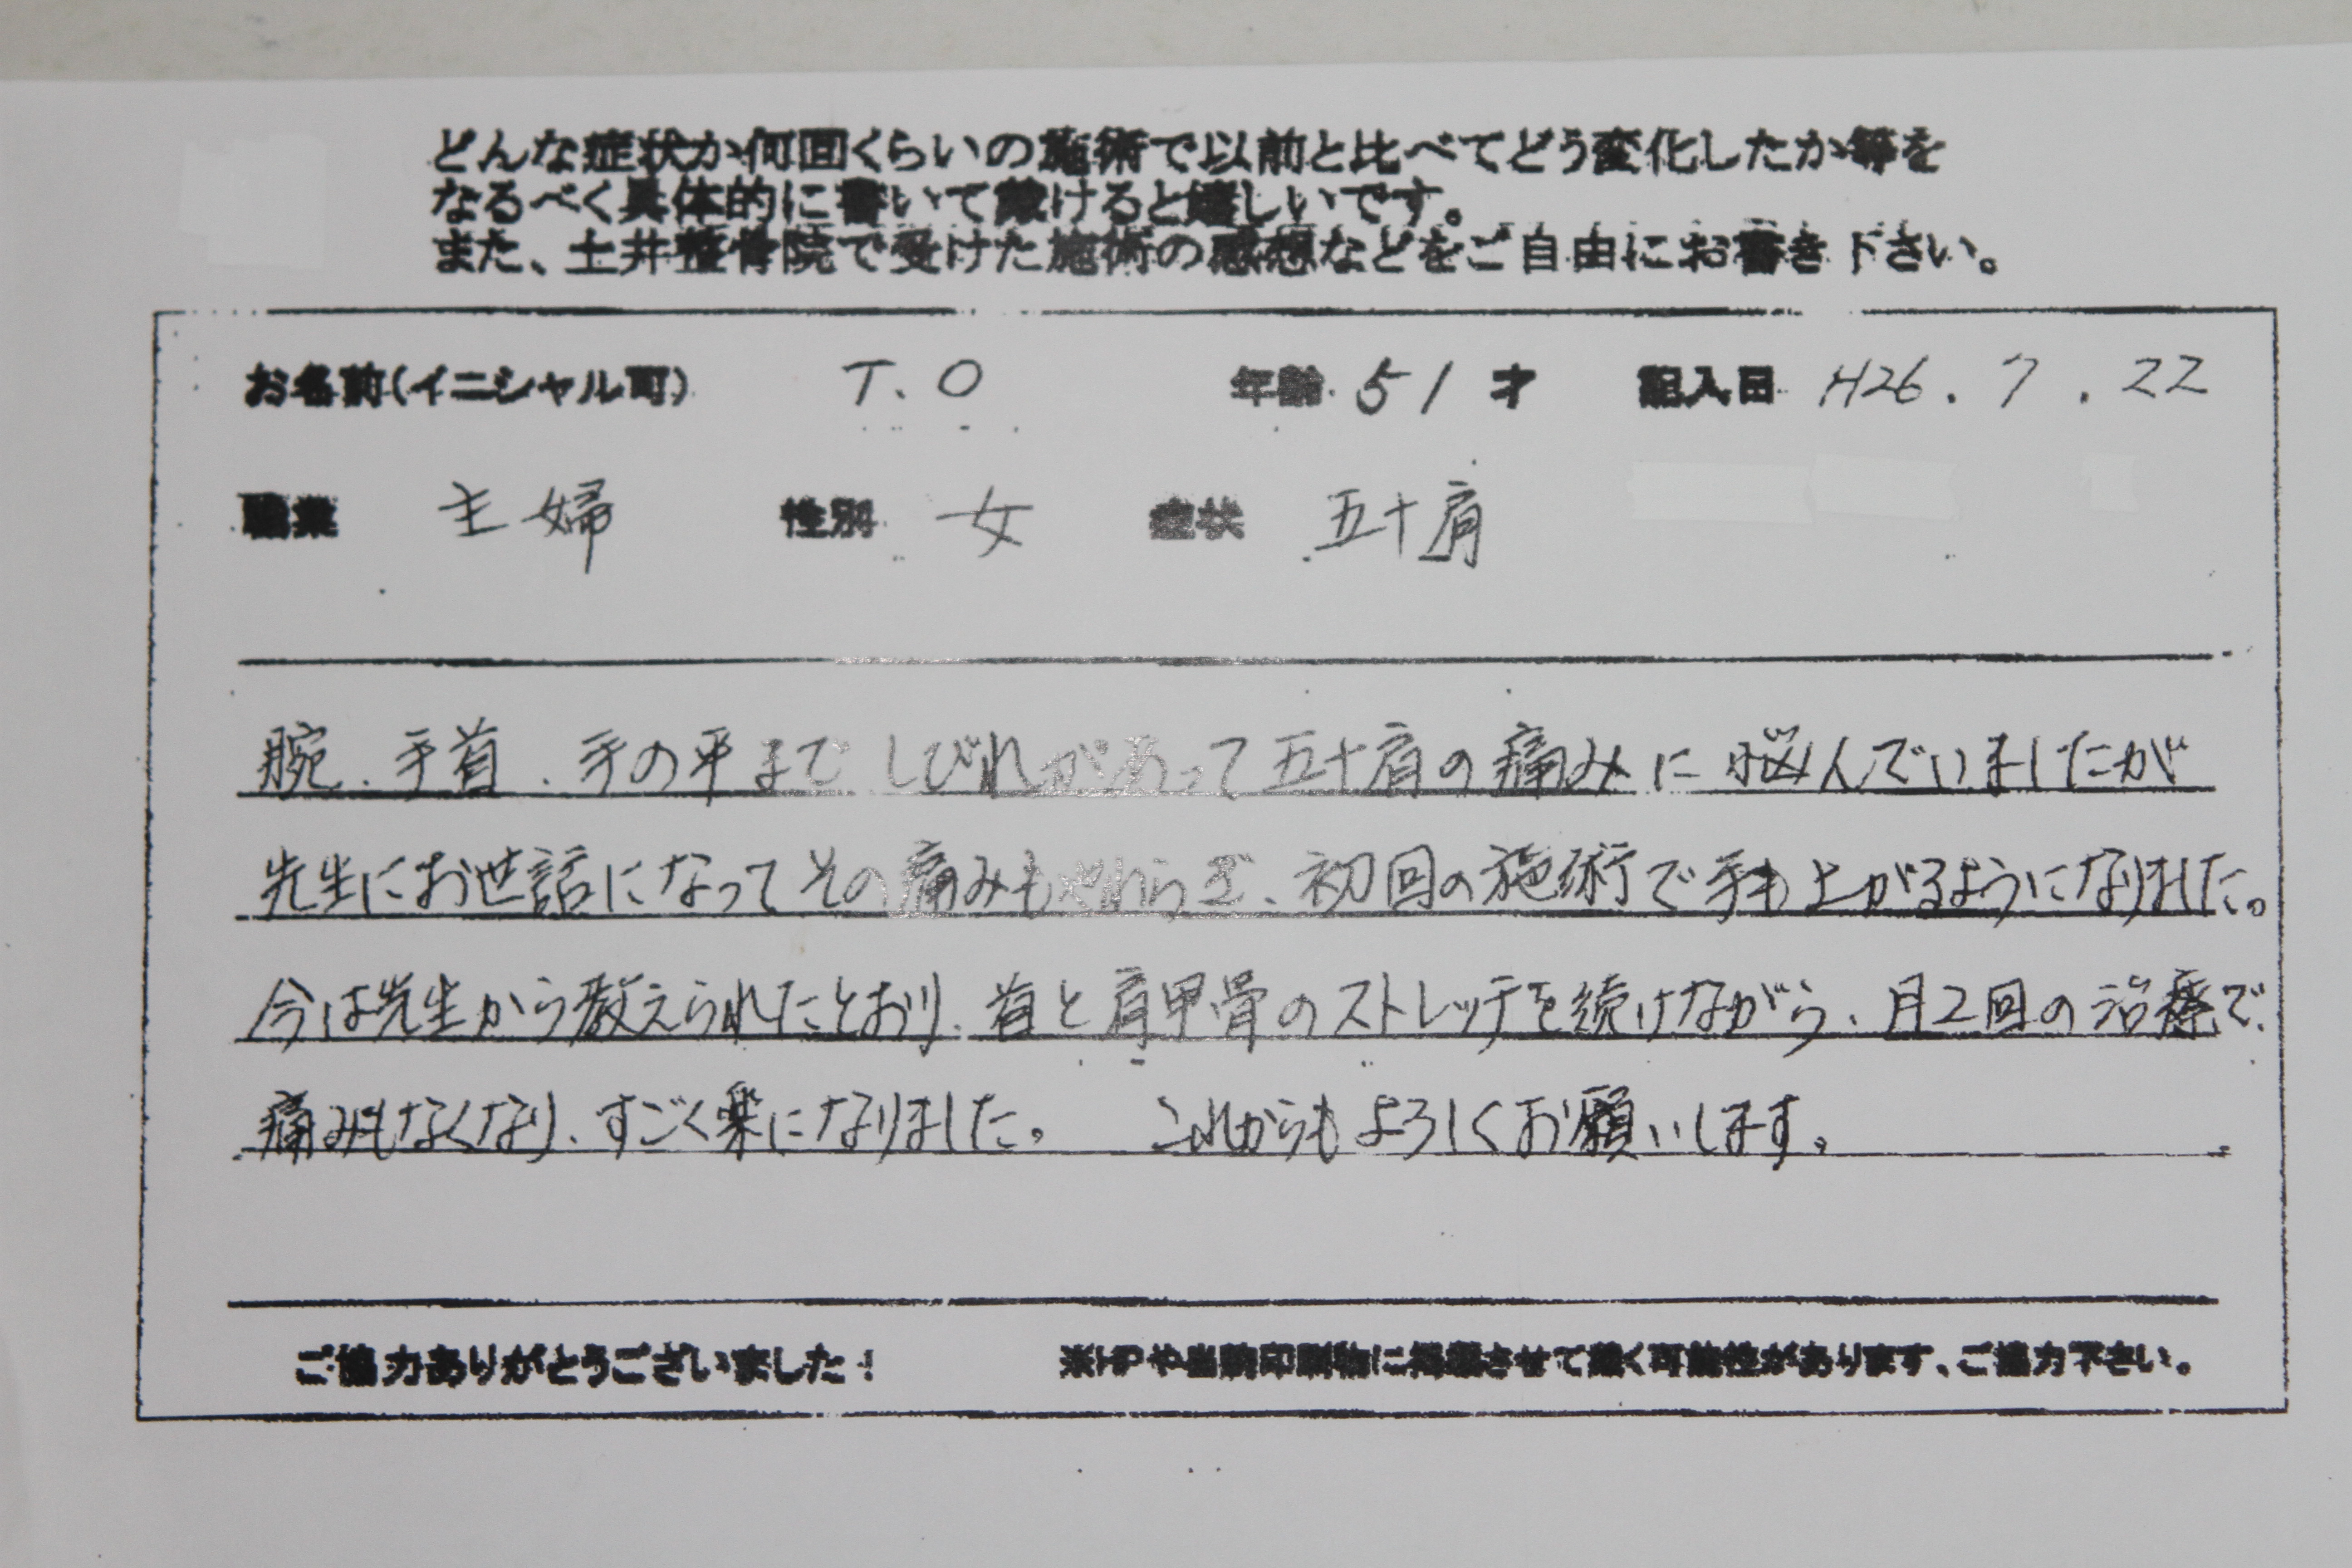 どんな症状か何回くらいの施術で以前と比べてどう変化したか等を
なるべく具体的に書いて戴けると嬉しいです。
また、土井整骨院で受けた施術の感想などをご自由にお書き下さい。
お名前(イニシャル可) T.O 年齢 51 才 記入日 H26.7.22
職業 主婦 性別 女 症状 五十肩
腕.手首.手の平まで しびれがあって五十肩の痛みに悩んでいましたが
先生にお世話になってその痛みもやわらぎ、初回の施術で手も上がるようになりました。
今は先生から教えられたとおり、首と肩甲骨のストレッチを続けながら、月2回の治療で、
痛みもなくなり、すごく楽になりました。 これからもよろしくお願いします。
ご協力ありがとうございました!
※HPや当院印刷物に掲載させて戴く可能性があります、ご協力下さい。